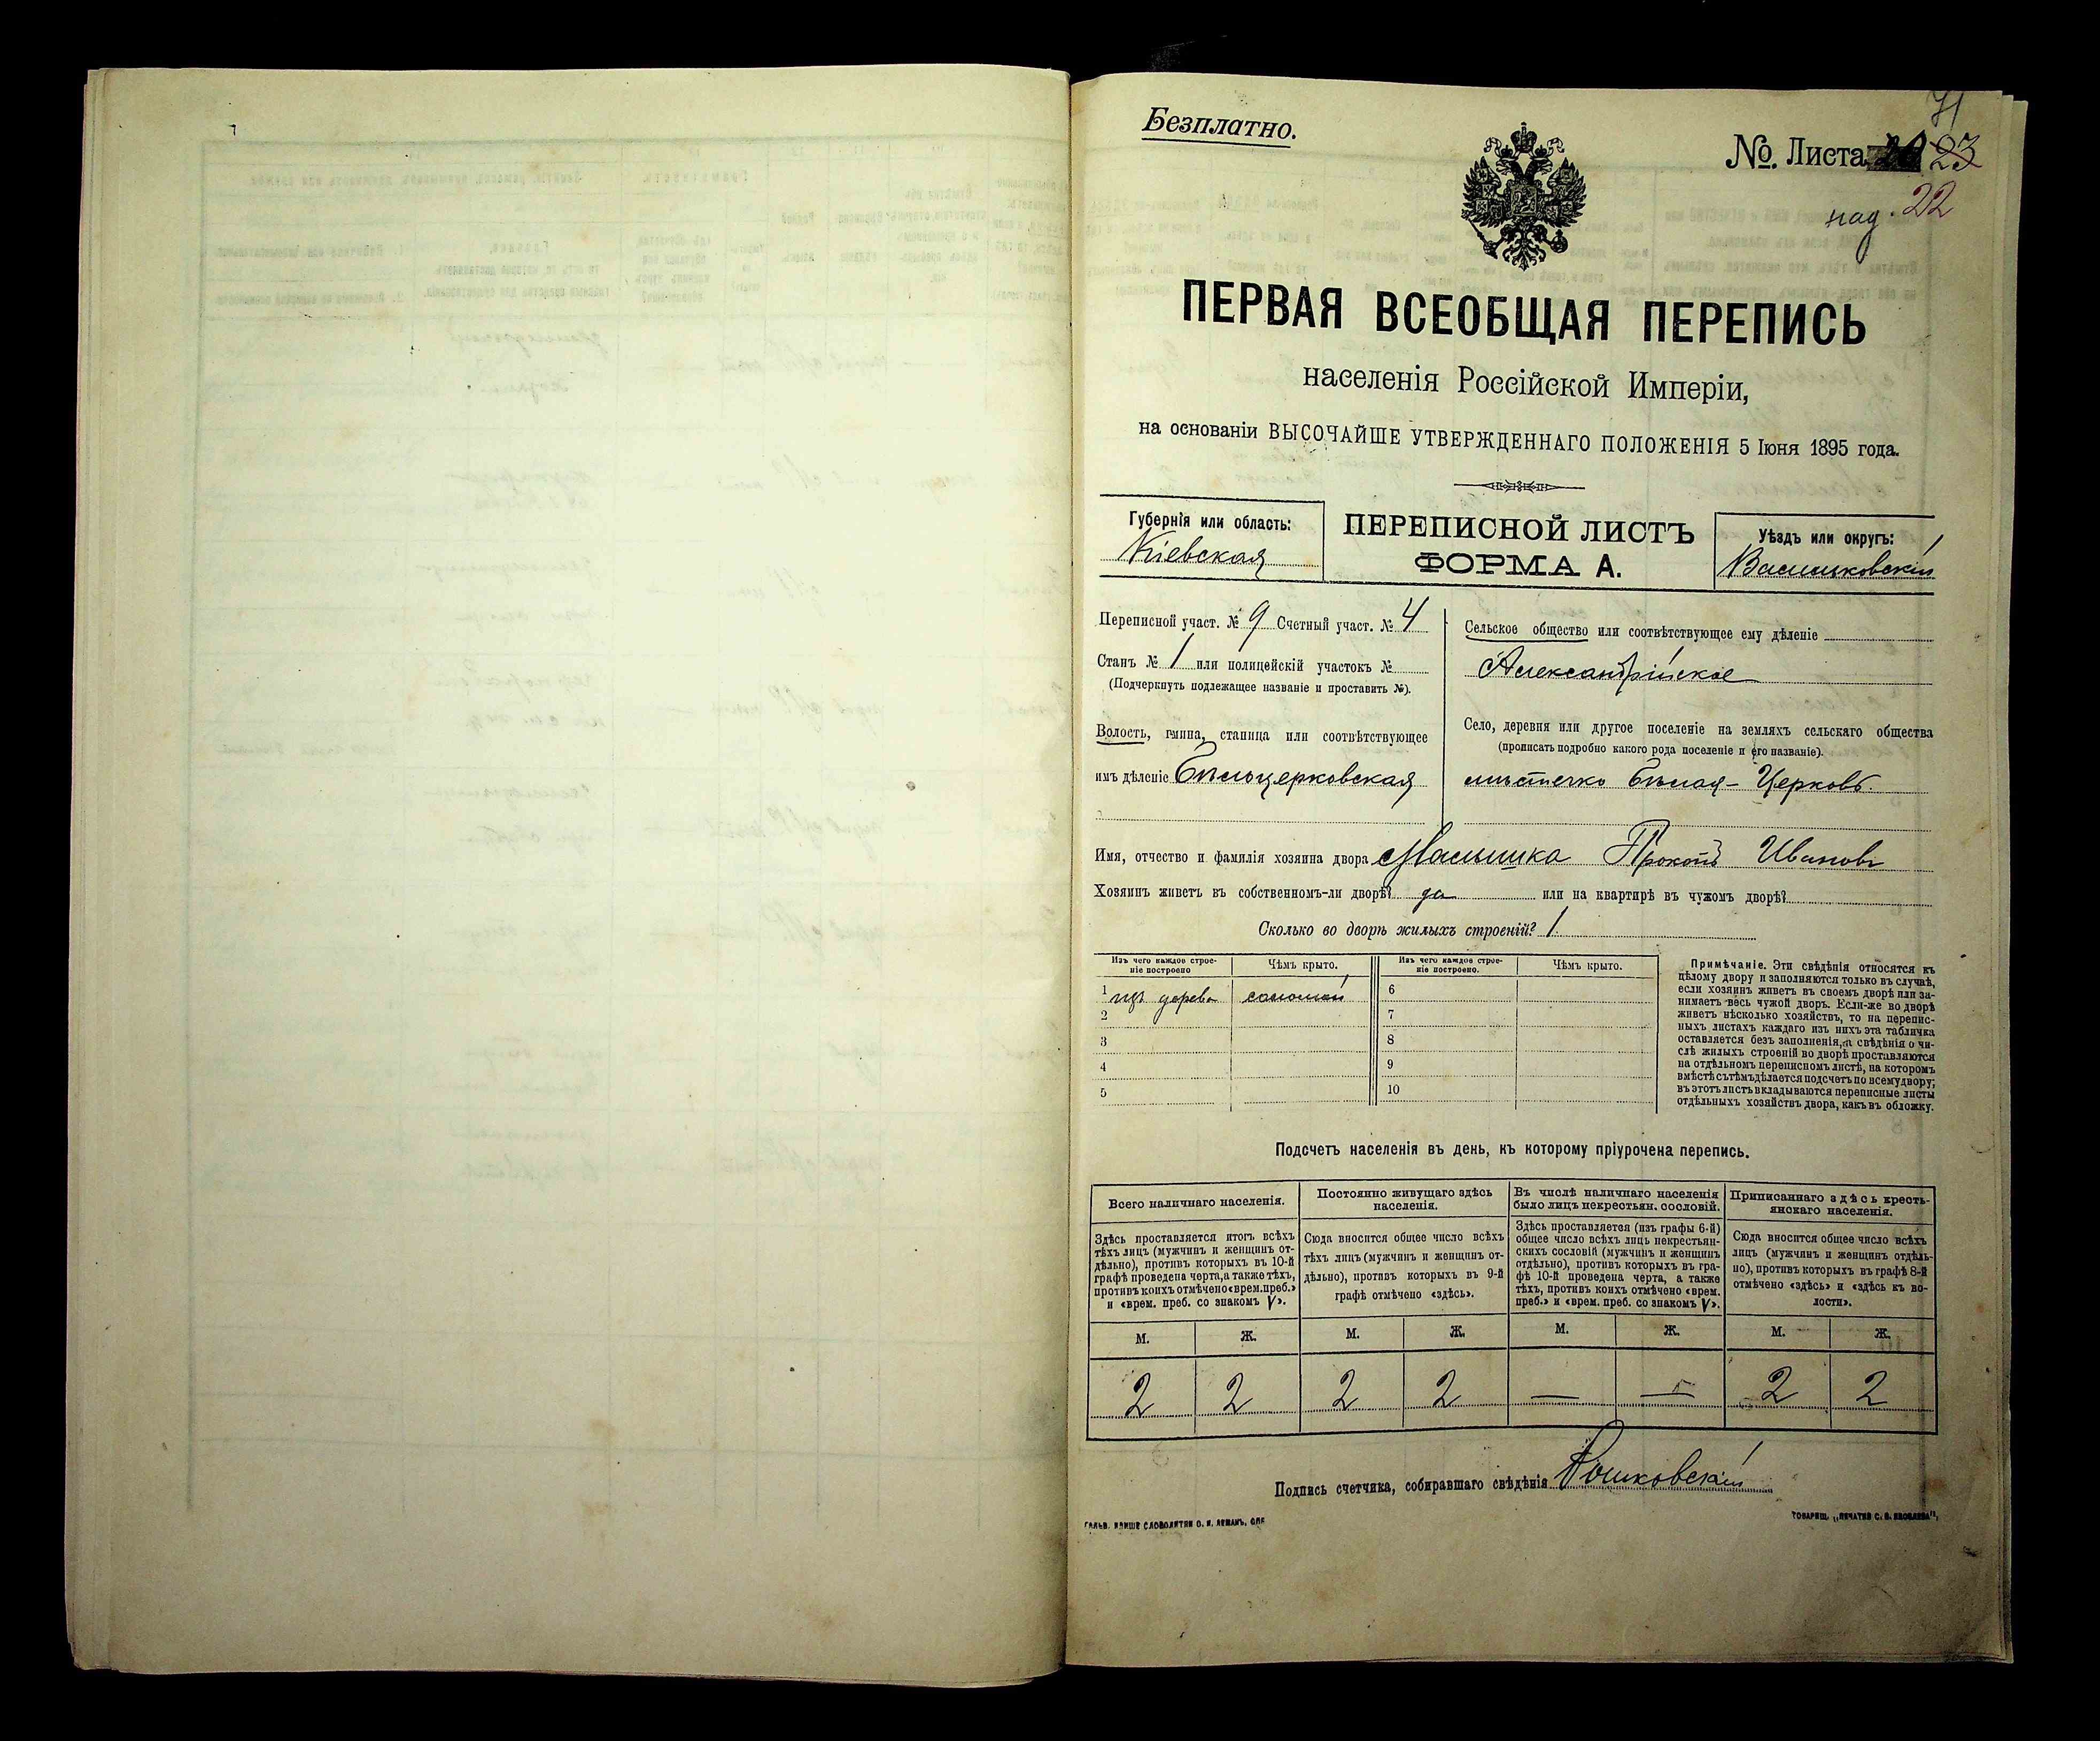 Безплатно.
71
№. Листа 23
над. 22
ПЕРВАЯ ВСЕОБЩАЯ ПЕРЕПИСЬ
населенія Россійской Имперіи,
на основаніи ВЫСОЧАЙШЕ УТВЕРЖДЕННАГО ПОЛОЖЕНІЯ 5 Іюня 1895 года.
Губернія или область:
Кіевская
ПЕРЕПИСНОЙ ЛИСТЪ
ФОРМА А.
Уѣздъ или округъ:
Васильковскій
Переписной участ. № 9 Счетный участ. № 4
Станъ № 1 или полицейскій участокъ №
(Подчеркнуть подлежащее названіе и проставить №).
Волость, гмина, станица или соотвѣтствующее
имъ дѣленіе Бѣлоцерковская
Сельское общество или соотвѣтствующее ему дѣленіе
Александрійское
Село, деревня или другое поселеніе на земляхъ сельскаго общества
(прописать подробно какого рода поселеніе и его названіе).
мѣстечко Бѣлая-Церковь.
Имя, отчество и фамилія хозяина двора Прокопъ Ивановъ
Хозяинъ живетъ въ собственномъ-ли дворѣ? да или на квартирѣ въ чужомъ дворѣ?
Сколько во дворѣ жилыхъ строеній? 1.
Изъ чего каждое строе-
ніе построено
Чѣмъ крыто.
Изъ чего каждое строе-
ніе построено.
Чѣмъ крыто.
1 изъ дерева соломой
2
3
4
5
6
7
8
9
10
Примѣчаніе. Эти свѣдѣнія относятся къ
цѣлому двору и заполняются только въ случаѣ,
если хозяинъ живетъ въ своемъ дворѣ или за-
нимаетъ весь чужой дворъ. Если-же во дворѣ
живетъ нѣсколько хозяйствъ, то на перепис-
ныхъ листахъ каждаго изъ нихъ эта табличка
оставляется безъ заполненія, а свѣдѣнія о чи-
слѣ жилыхъ строеній во дворѣ проставляются
на отдѣльномъ переписномъ листѣ, на которомъ
вмѣстѣ съ тѣмъ дѣлается подсчетъ по всему двору;
въ этотъ листъ вкладываются переписные листы
отдѣльныхъ хозяйствъ двора, какъ въ обложку.
Подсчетъ населенія въ день, къ которому пріурочена перепись.
Всего наличнаго населенія.
Здѣсь проставляется итогъ всѣхъ
тѣхъ лицъ (мужчинъ и женщинъ от-
дѣльно), противъ которыхъ въ 10-й
графѣ проведена черта, а также тѣхъ,
противъ коихъ отмѣчено «врем. преб.»
и «врем. преб. со знакомъ V».
Постоянно живущаго здѣсь
населенія.
Сюда вносится общее число всѣхъ
тѣхъ лицъ (мужчинъ и женщинъ от-
дѣльно), противъ которыхъ въ 9-й
графѣ отмѣчено «здѣсь».
Въ числѣ наличнаго населенія
было лицъ некрестьян. сословій.
Здѣсь проставляется (изъ графы 6-й)
общее число всѣхъ лицъ некрестьян-
скихъ сословій (мужчинъ и женщинъ
отдѣльно), противъ которыхъ въ гра-
фѣ 10-й проведена черта, а также
тѣхъ, противъ коихъ отмѣчено «врем.
преб.» и «врем. преб. со знакомъ V».
Приписаннаго здѣсь кресть-
янскаго населенія.
Сюда вносится общее число всѣхъ
лицъ (мужчинъ и женщинъ отдѣль-
но), противъ которыхъ въ графѣ 8-й
отмѣчено «здѣсь» и «здѣсь къ во-
лости».
М. Ж. М. Ж. М. Ж. М. Ж.
2 2 2 2 — — 2 2
Подпись счетчика, собиравшаго свѣдѣнія
ГАЛЬВ. КЛИШЕ СЛОВОЛИТНИ О. И. ЛЕМАНЪ, СПБ
ТОВАРИЩ. „ПЕЧАТНЯ С. П. ЯКОВЛЕВА",